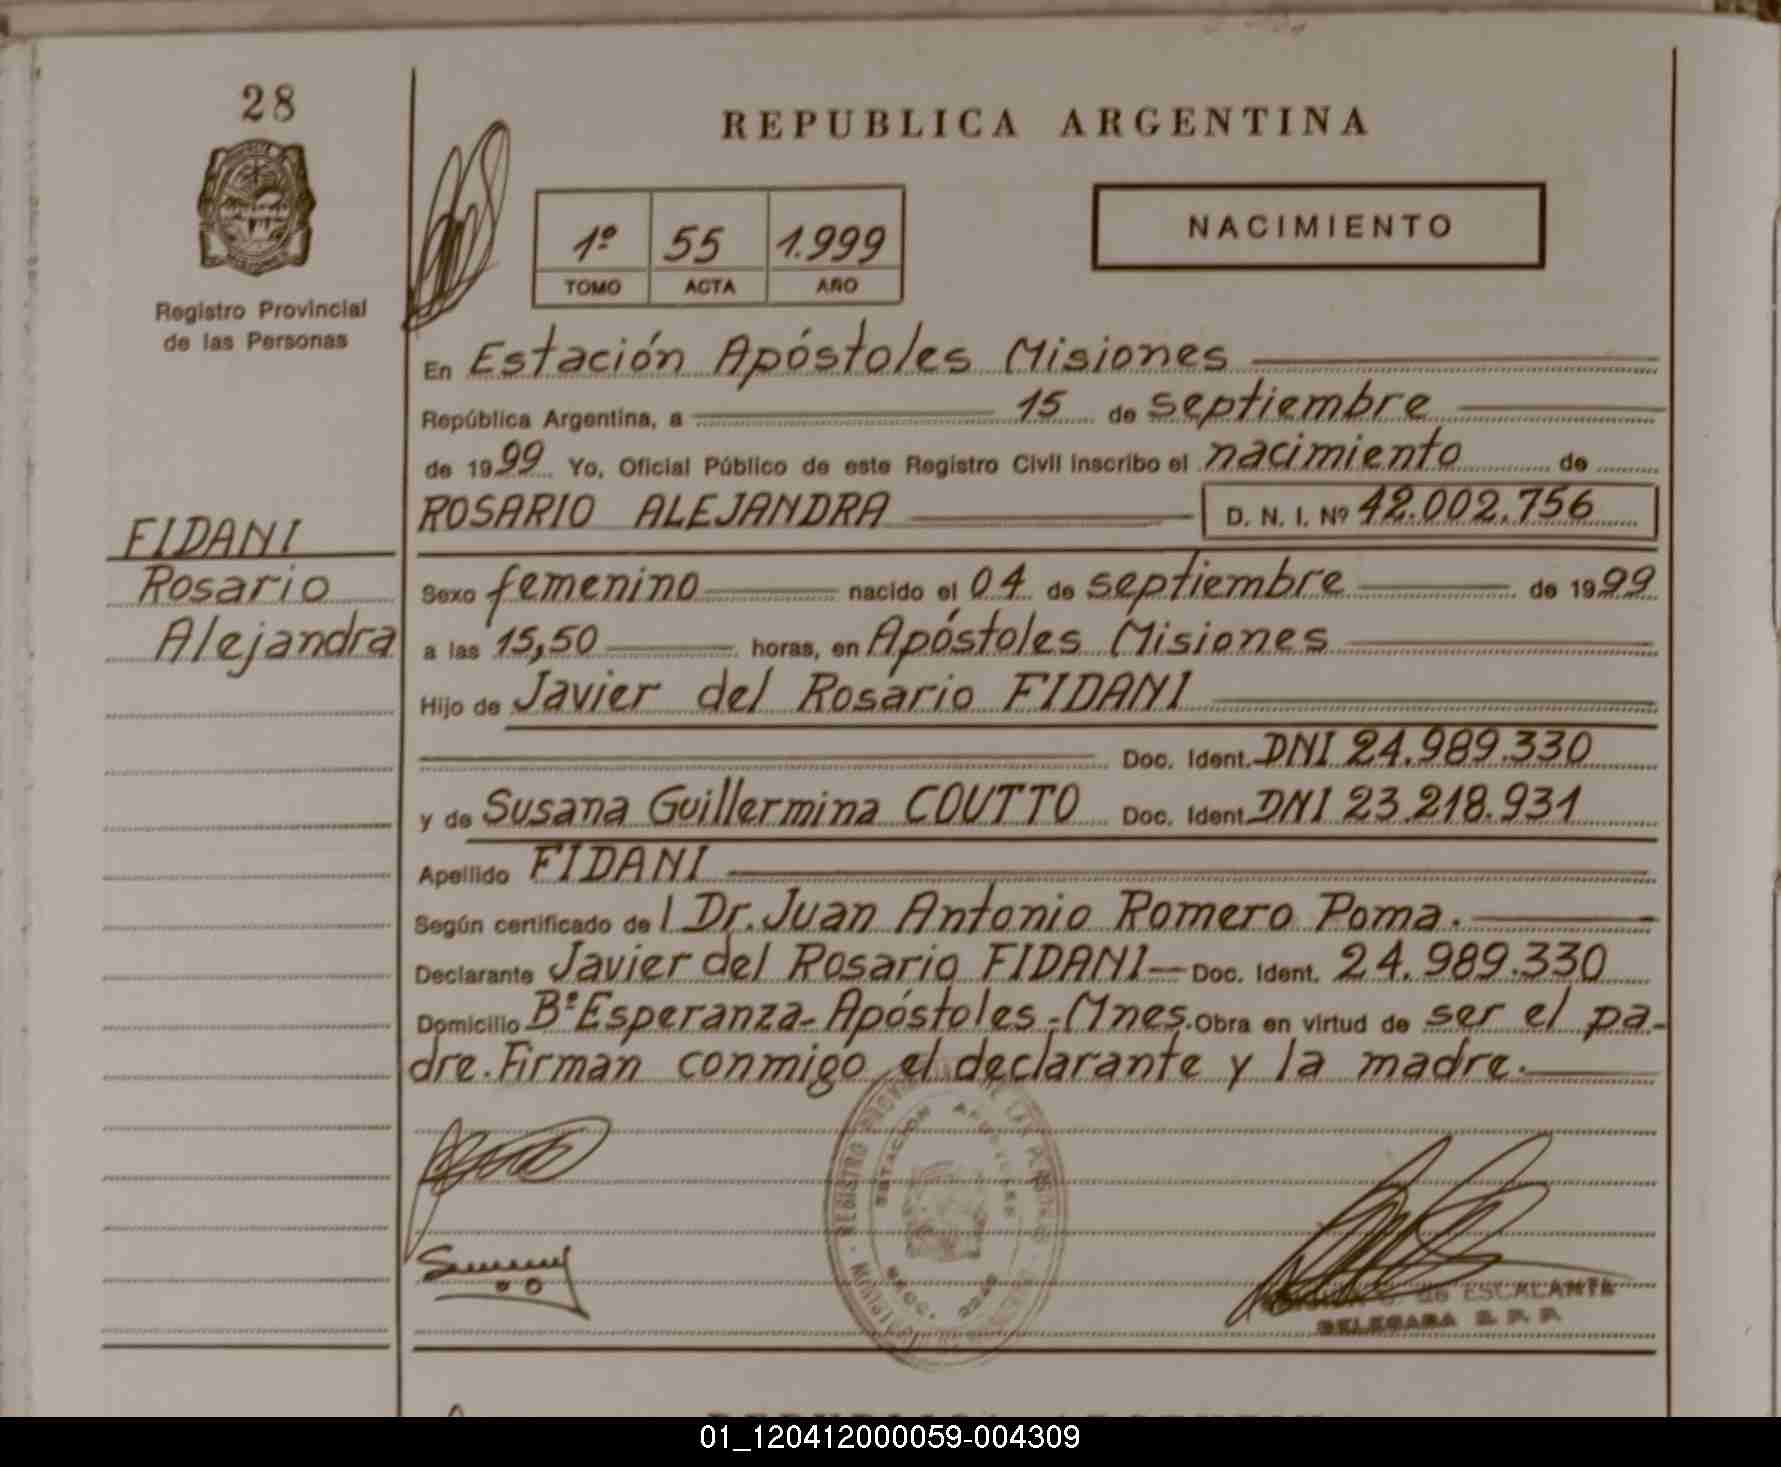 28
REPUBLICA ARGENTINA
1º 55 1.999
TOMO ACTA AÑO
NACIMIENTO
Registro Provincial
de las Personas
En Estación Apóstoles Misiones
República Argentina, a 15 de septiembre
de 1999 Yo, Oficial Público de este Registro Civil inscribo el nacimiento de
ROSARIO ALEJANDRA D. N. I. Nº 42.002.756
FIDANI
Rosario
Alejandra
Sexo femenino nacido el 04 de septiembre de 1999
a las 15,50 horas, en Apóstoles Misiones
Hijo de Javier del Rosario FIDANI
Doc. Ident. DNI 24.989.330
y de Susana Guillermina COUTTO Doc. Ident. DNI 23.218.931
Apellido FIDANI
Según certificado de l Dr. Juan Antonio Romero Poma.
Declarante Javier del Rosario FIDANI— Doc. Ident. 24.989.330
Domicilio Bº Esperanza- Apóstoles-Mnes. Obra en virtud de ser el pa-
dre. Firman conmigo el declarante y la madre.
REGISTRO
ESTACION APOSTOLES
ESCALANTE
DELEGADA R. P. P.
01_120412000059-004309